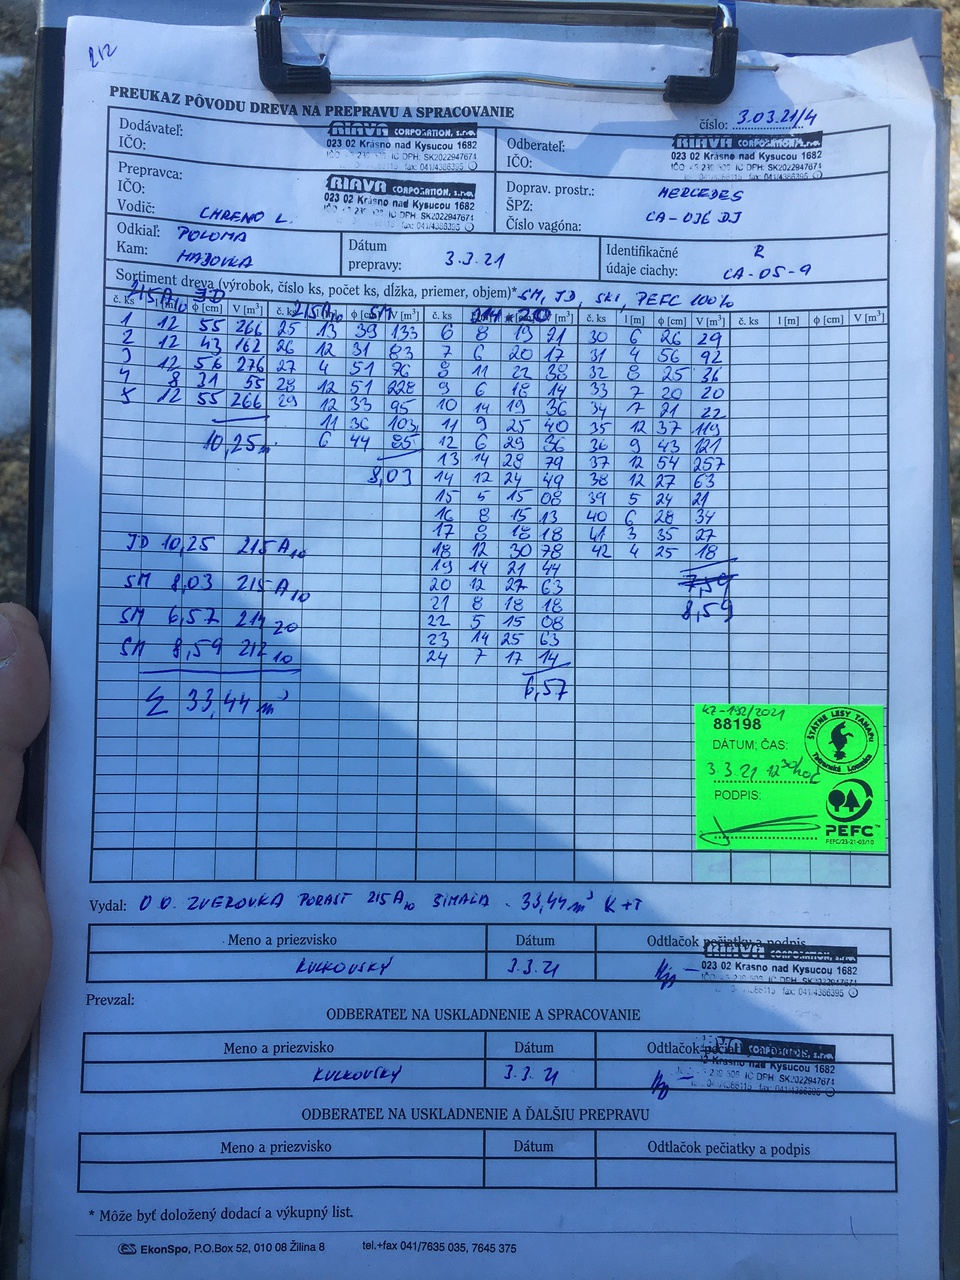 212
PREUKAZ PÔVODU DREVA NA PREPRAVU A SPRACOVANIE
číslo: 3.03.21/4
Dodávateľ:
IČO:
RIAVA CORPORATION, s.r.o.
023 02 Krásno nad Kysucou 1682
IC DPH: SK2022947671
fax: 041/4386395
Odberateľ:
IČO:
RIAVA CORPORATION, s.r.o.
023 02 Krásno nad Kysucou 1682
Prepravca:
IČO:
Vodič: CHRENO L.
RIAVA CORPORATION, s.r.o.
023 02 Krásno nad Kysucou 1682
IC DPH: SK2022947671
fax: 041/4386395
Doprav. prostr.: MERCEDES
ŠPZ:
Číslo vagóna: CA-036 DJ
Odkiaľ: POLOMA
Kam: HABOVKA
Dátum
prepravy: 3.3.21
Identifikačné R
údaje ciachy: CA-05-9
Sortiment dreva (výrobok, číslo ks, počet ks, dĺžka, priemer, objem)* SM, JD, SKI, PEFC 100%
215A10 JD 215A10 SM 214 20
č. ks l [m] ϕ [cm] V [m³] č. ks l [m] ϕ [cm] V [m³] č. ks ϕ [cm] V [m³] č. ks l [m] ϕ [cm] V [m³] č. ks l [m] ϕ [cm] V [m³]
1 12 55 266 25 13 39 133 6 8 19 21 30 6 26 29
2 12 43 162 26 12 31 83 7 6 20 17 31 4 56 92
3 12 56 276 27 4 51 76 8 11 22 38 32 8 25 36
4 8 31 55 28 12 51 228 9 6 18 14 33 7 20 20
5 12 55 266 29 12 33 95 10 14 19 36 34 7 21 22
11 36 103 11 9 25 40 35 12 37 119
10,25 6 44 85 12 6 29 36 36 9 43 121
13 14 28 79 37 12 54 257
8,03 14 12 24 49 38 12 27 63
15 5 15 08 39 5 24 21
16 8 15 13 40 6 28 34
17 8 18 18 41 3 35 27
JD 10,25 215A10 18 12 30 78 42 4 25 18
19 14 21 44
SM 8,03 215A10 20 12 27 63 7,59
21 8 18 18 8,59
SM 6,57 214 20 22 5 15 08
23 14 25 63
SM 8,59 212 10 24 7 17 14
6,57
Σ 33,44 m³
KZ-192/2021
88198
DÁTUM, ČAS:
3.3.21 12 30 hod
PODPIS:
ŠTÁTNE LESY TANAPU
Tatranská Lomnica
PEFC™
PEFC/23-21-03/10
Vydal: O.O. ZVEROVKA PORAST 215A10 33,44 m³ K+T
Meno a priezvisko Dátum Odtlačok pečiatky a podpis
KULKOVSKÝ 3.3.21
RIAVA CORPORATION, s.r.o.
023 02 Krásno nad Kysucou 1682
IC DPH: SK2022947671
fax: 041/4386395
Prevzal:
ODBERATEĽ NA USKLADNENIE A SPRACOVANIE
Meno a priezvisko Dátum Odtlačok pečiatky
KULKOVSKÝ 3.3.21
Krásno nad Kysucou 1682
IC DPH: SK2022947671
fax: 041/4386395
ODBERATEĽ NA USKLADNENIE A ĎALŠIU PREPRAVU
Meno a priezvisko Dátum Odtlačok pečiatky a podpis
* Môže byť doložený dodací a výkupný list.
EkonSpo, P.O.Box 52, 010 08 Žilina 8 tel.+fax 041/7635 035, 7645 375